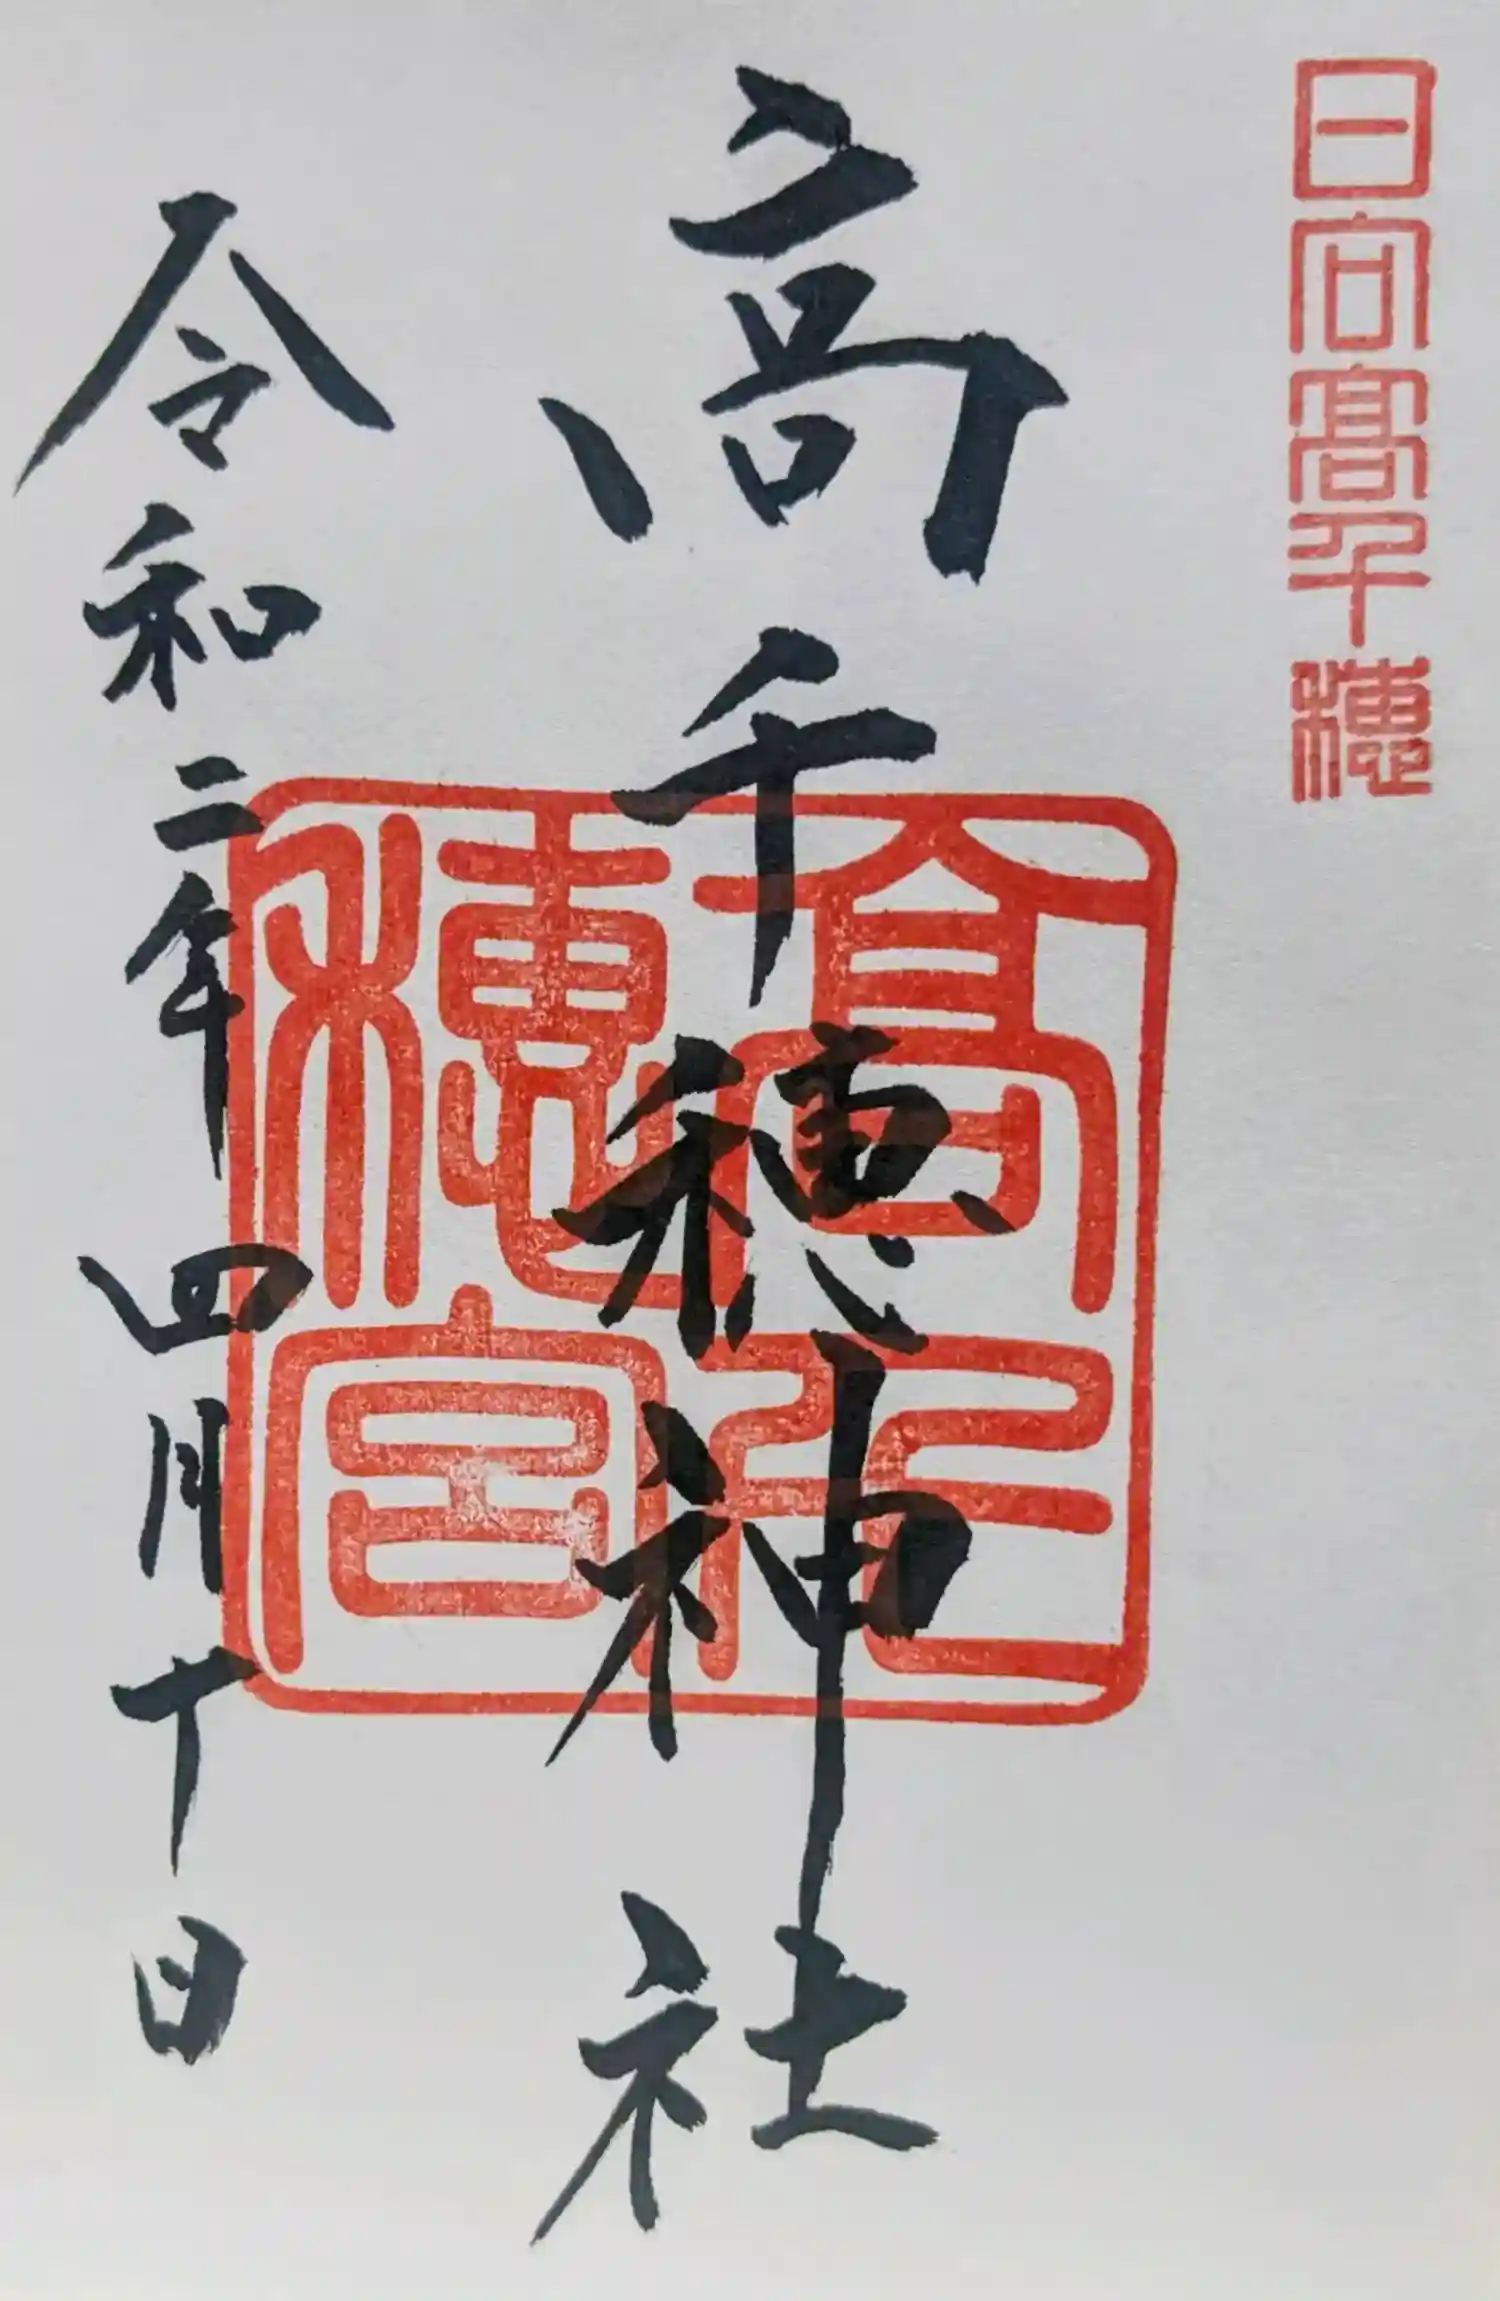 日向髙千穂
高千穂神社
髙千穂宮
令和二年四月十日